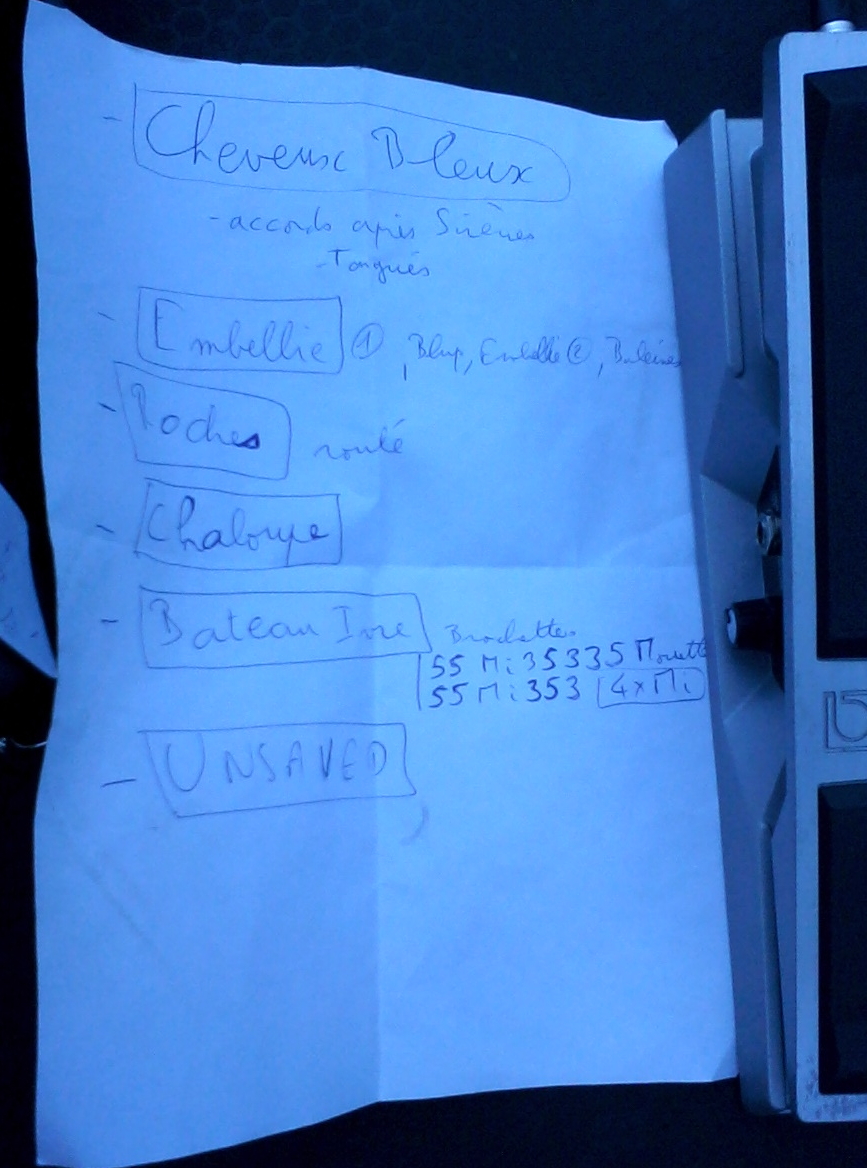 - Cheveux Bleux
- accords après Sirènes
- Tongués
- Embellie ① , Blup, Embellie ②, Baleines
- Roches roulé
- Chaloupe
- Bateau Ivre Brochettes
55 Mi 35335 Mouett
55 Mi 353 4xMi
- UNSAVED